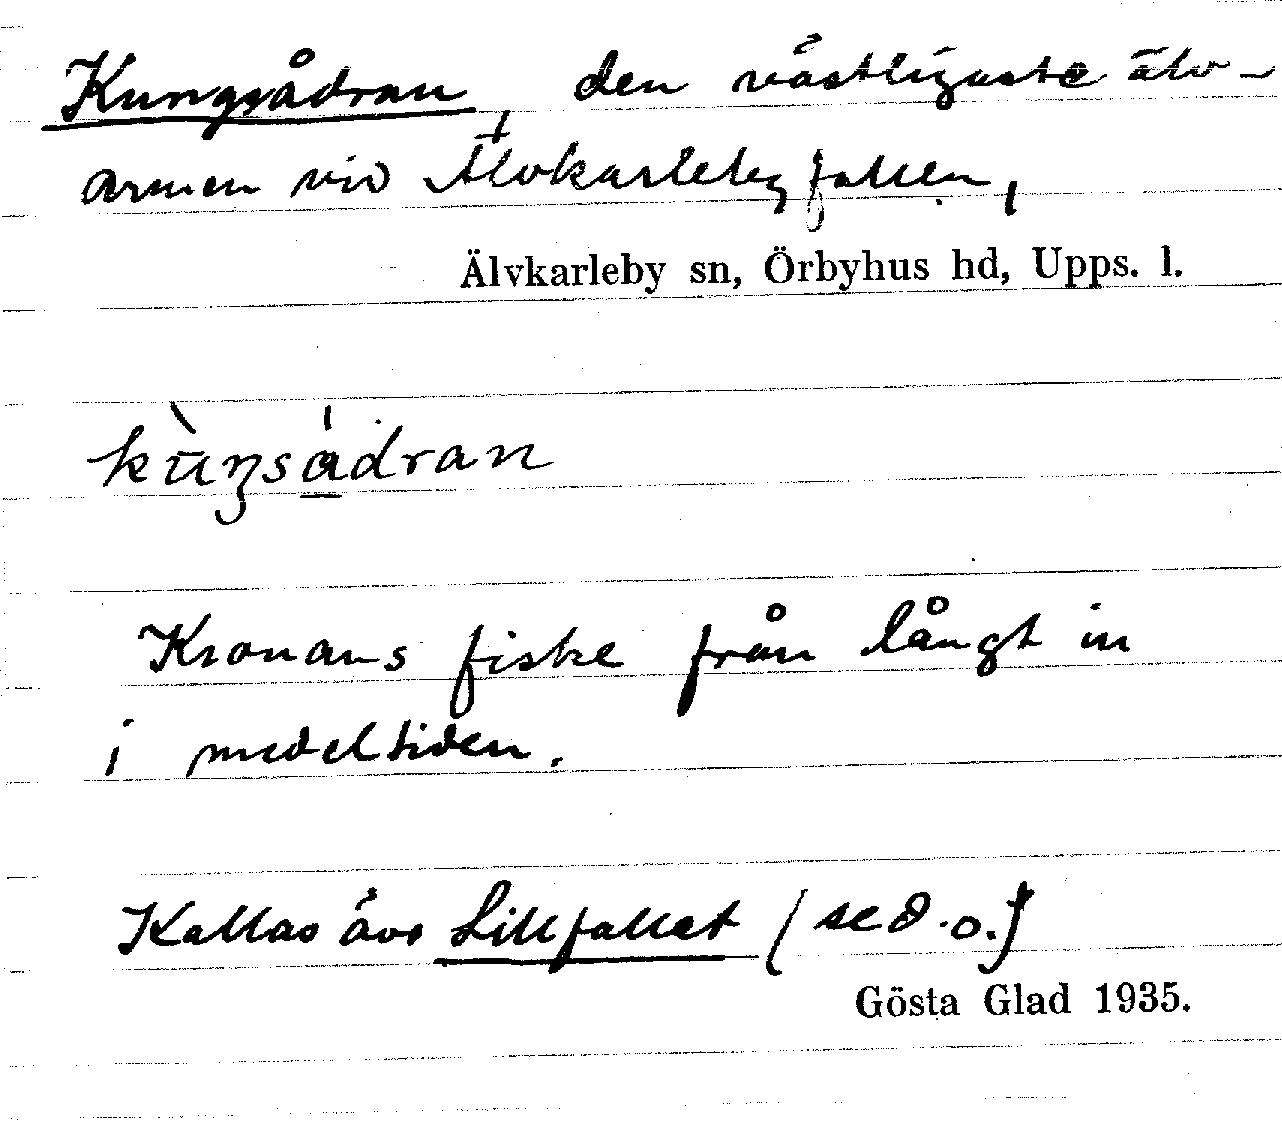 Kungsådran, den västligaste älv-
armen vid Älvkarlebyfallen,
Älvkarleby sn, Örbyhus hd, Upps. l.
kùŋsádran
Kronans fiske från långt in
i medeltiden.
Kallas äve Lillfallet (se d. o.)
Gösta Glad 1935.